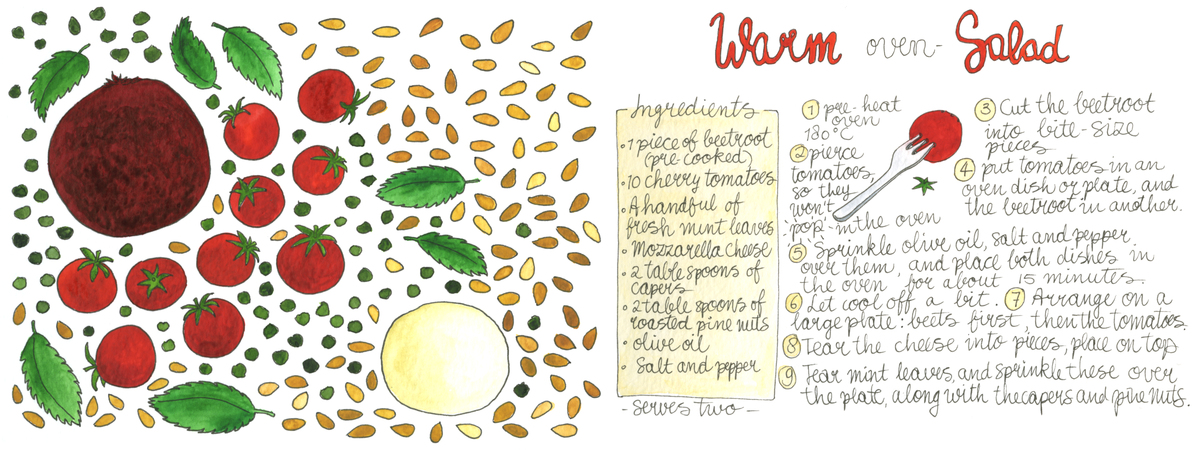 Warm oven- Salad
Ingredients
• 1 piece of beetroot
(pre cooked)
• 10 cherry tomatoes
• A handful of
fresh mint leaves
• Mozzarella cheese
• 2 table spoons of
capers
• 2 table spoons of
roasted pine nuts
• olive oil
• Salt and pepper
- serves two -
1 pre-heat
oven
180°C
2 pierce
tomatoes,
so they
won't
'pop' in the oven
3 Cut the beetroot
into bite-size
pieces
4 put tomatoes in an
oven dish or plate, and
the beetroot in another.
5 Sprinkle olive oil, salt and pepper
over them, and place both dishes in
the oven for about 15 minutes.
6 Let cool off a bit. 7 Arrange on a
large plate: beets first, then the tomatoes.
8 Tear the cheese into pieces, place on top
9 Tear mint leaves, and sprinkle these over
the plate, along with the capers and pine nuts.